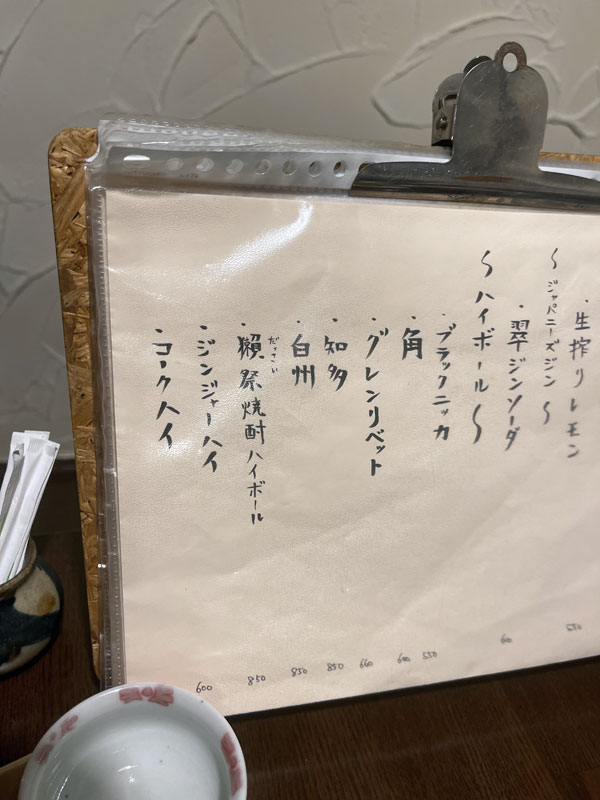 ・生搾りレモン
〜ジャパニーズジン〜
・翠ジンソーダ
〜ハイボール〜
・ブラックニッカ
・角
・グレンリベット
・知多
・白州
・獺祭焼酎ハイボール
だっさい
・ジンジャーハイ
・コークハイ
550
600
660
850
850
850
600